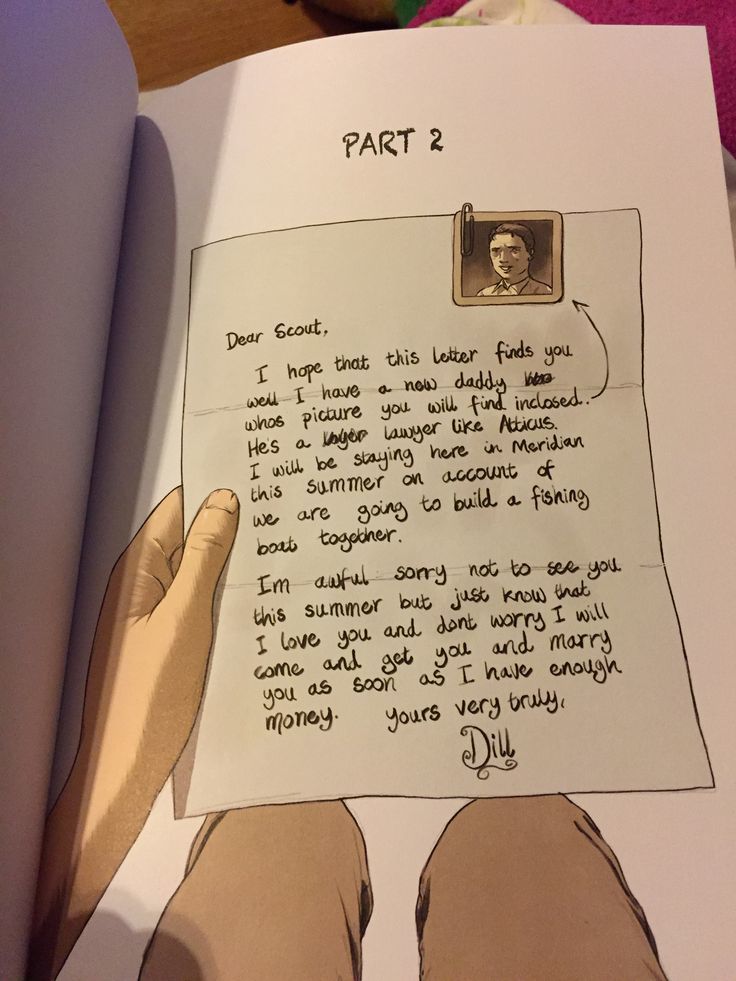 PART 2
Dear Scout,
I hope that this letter finds you
well I have a new daddy
whos picture you will find inclosed.
He's a lawyer like Atticus.
I will be staying here in Meridian
this summer on account of
we are going to build a fishing
boat together.
Im awful sorry not to see you
this summer but just know that
I love you and dont worry I will
come and get you and marry
you as soon as I have enough
money. yours very truly,
Dill